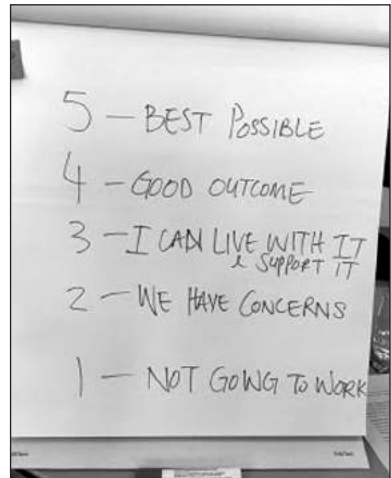 5 – BEST POSSIBLE
4 – GOOD OUTCOME
3 – I CAN LIVE WITH IT
& SUPPORT IT
2 – WE HAVE CONCERNS
1 – NOT GOING TO WORK